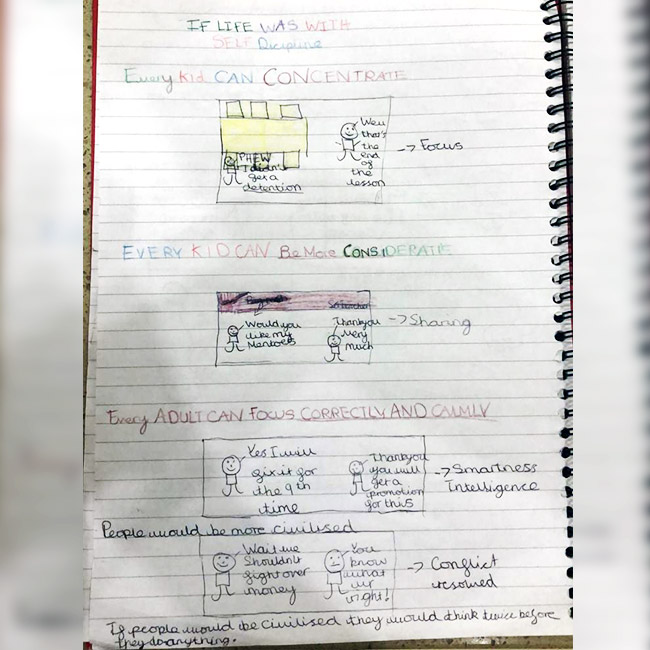 IF LIFE WAS WITH
SELF Discipline
Every Kid CAN CONCENTRATE
PHEW
I didn't
get a
detention
Well
that's
the
end
of
the
lesson
-> Focus
EVERY KID CAN Be More CONSIDERATE
Would you
like my
Mentoes
Thankyou
Very
much
-> Sharing
Every ADULT CAN FOCUS CORRECTLY AND CALMLY
Yes I will
fix it for
the 9th
time
Thankyou
you will
get a
promotion
for this
-> Smartness
Intelligence
People would be more civilised
Wait we
Shouldn't
fight over
money
You
know
what
ur
right!
-> Conflict
resolved
If people would be civilised they would think twice before
they do anything.